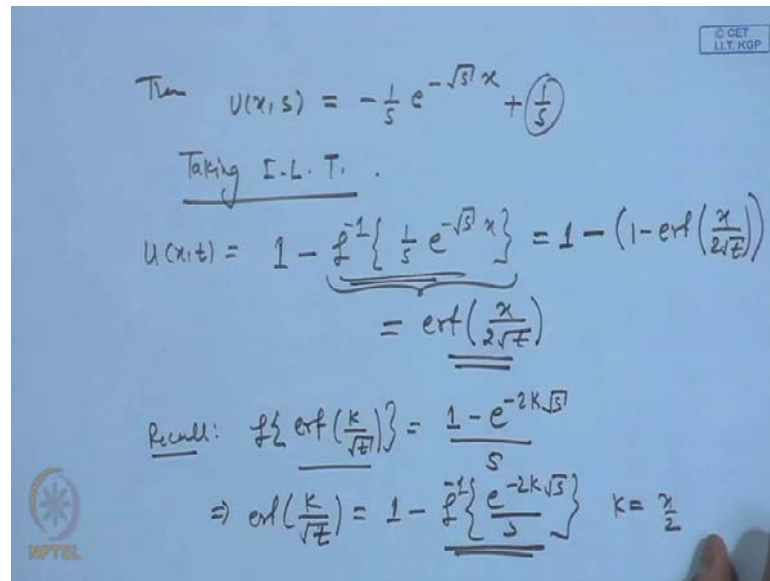 © CET
I.I.T. KGP
Then U(x, s) = -1/s e^{-√s x} + 1/s
Taking I.L.T.
u(x,t) = 1 - ℒ^{-1}{ 1/s e^{-√s x} } = 1 - (1 - erf(x/2√t))
= erf(x/2√t)
Recall: ℒ{ erf(k/√t) } = (1 - e^{-2k√s})/s
⇒ erf(k/√t) = 1 - ℒ^{-1}{ e^{-2k√s}/s } k = x/2
NPTEL